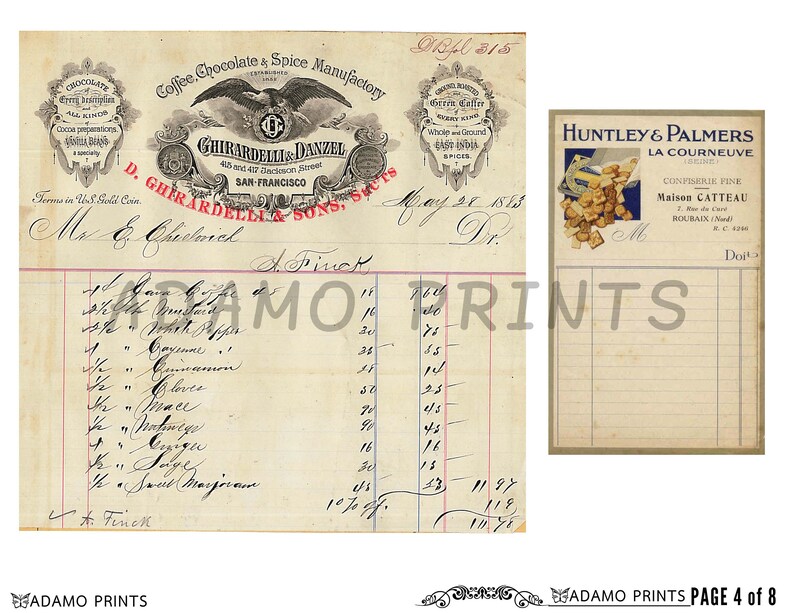 D Bfol 315
Coffee, Chocolate & Spice Manufactory
ESTABLISHED
1852
CHOCOLATE
of
Every description
and
ALL KINDS
of
Cocoa preparations.
VANILLA BEANS
a specialty
GROUND, ROASTED
and
Green Coffee
of
EVERY KIND
Whole and Ground
EAST INDIA
SPICES.
GHIRARDELLI & DANZEL
415 and 417 Jackson Street
SAN-FRANCISCO
D. GHIRARDELLI & SONS, Suc'rs
Terms in U.S. Gold Coin.
May 28 1883
Mr E. Dr.
A. Finck
Java Coffee 45 18 8 64
2 1/2 Lbs Mustard 16 40
2 1/2 " White Pepper 30 75
1 " Cayenne " 35 35
1/2 " Cinnamon 28 14
1/2 " Cloves 50 25
1/2 " Mace 90 45
1/2 " Nutmegs 90 45
1 " Ginger 16 16
1/2 " Sage 30 15
1/2 " Sweet Marjoram 45 23 11 97
10% off. 1 19
10 78
A. Finck
HUNTLEY & PALMERS
LA COURNEUVE
(SEINE)
CONFISERIE FINE
Maison CATTEAU
7, Rue du Curé
ROUBAIX (Nord)
R. C. 4246
M
Doit
ADAMO PRINTS
ADAMO PRINTS
ADAMO PRINTS PAGE 4 of 8